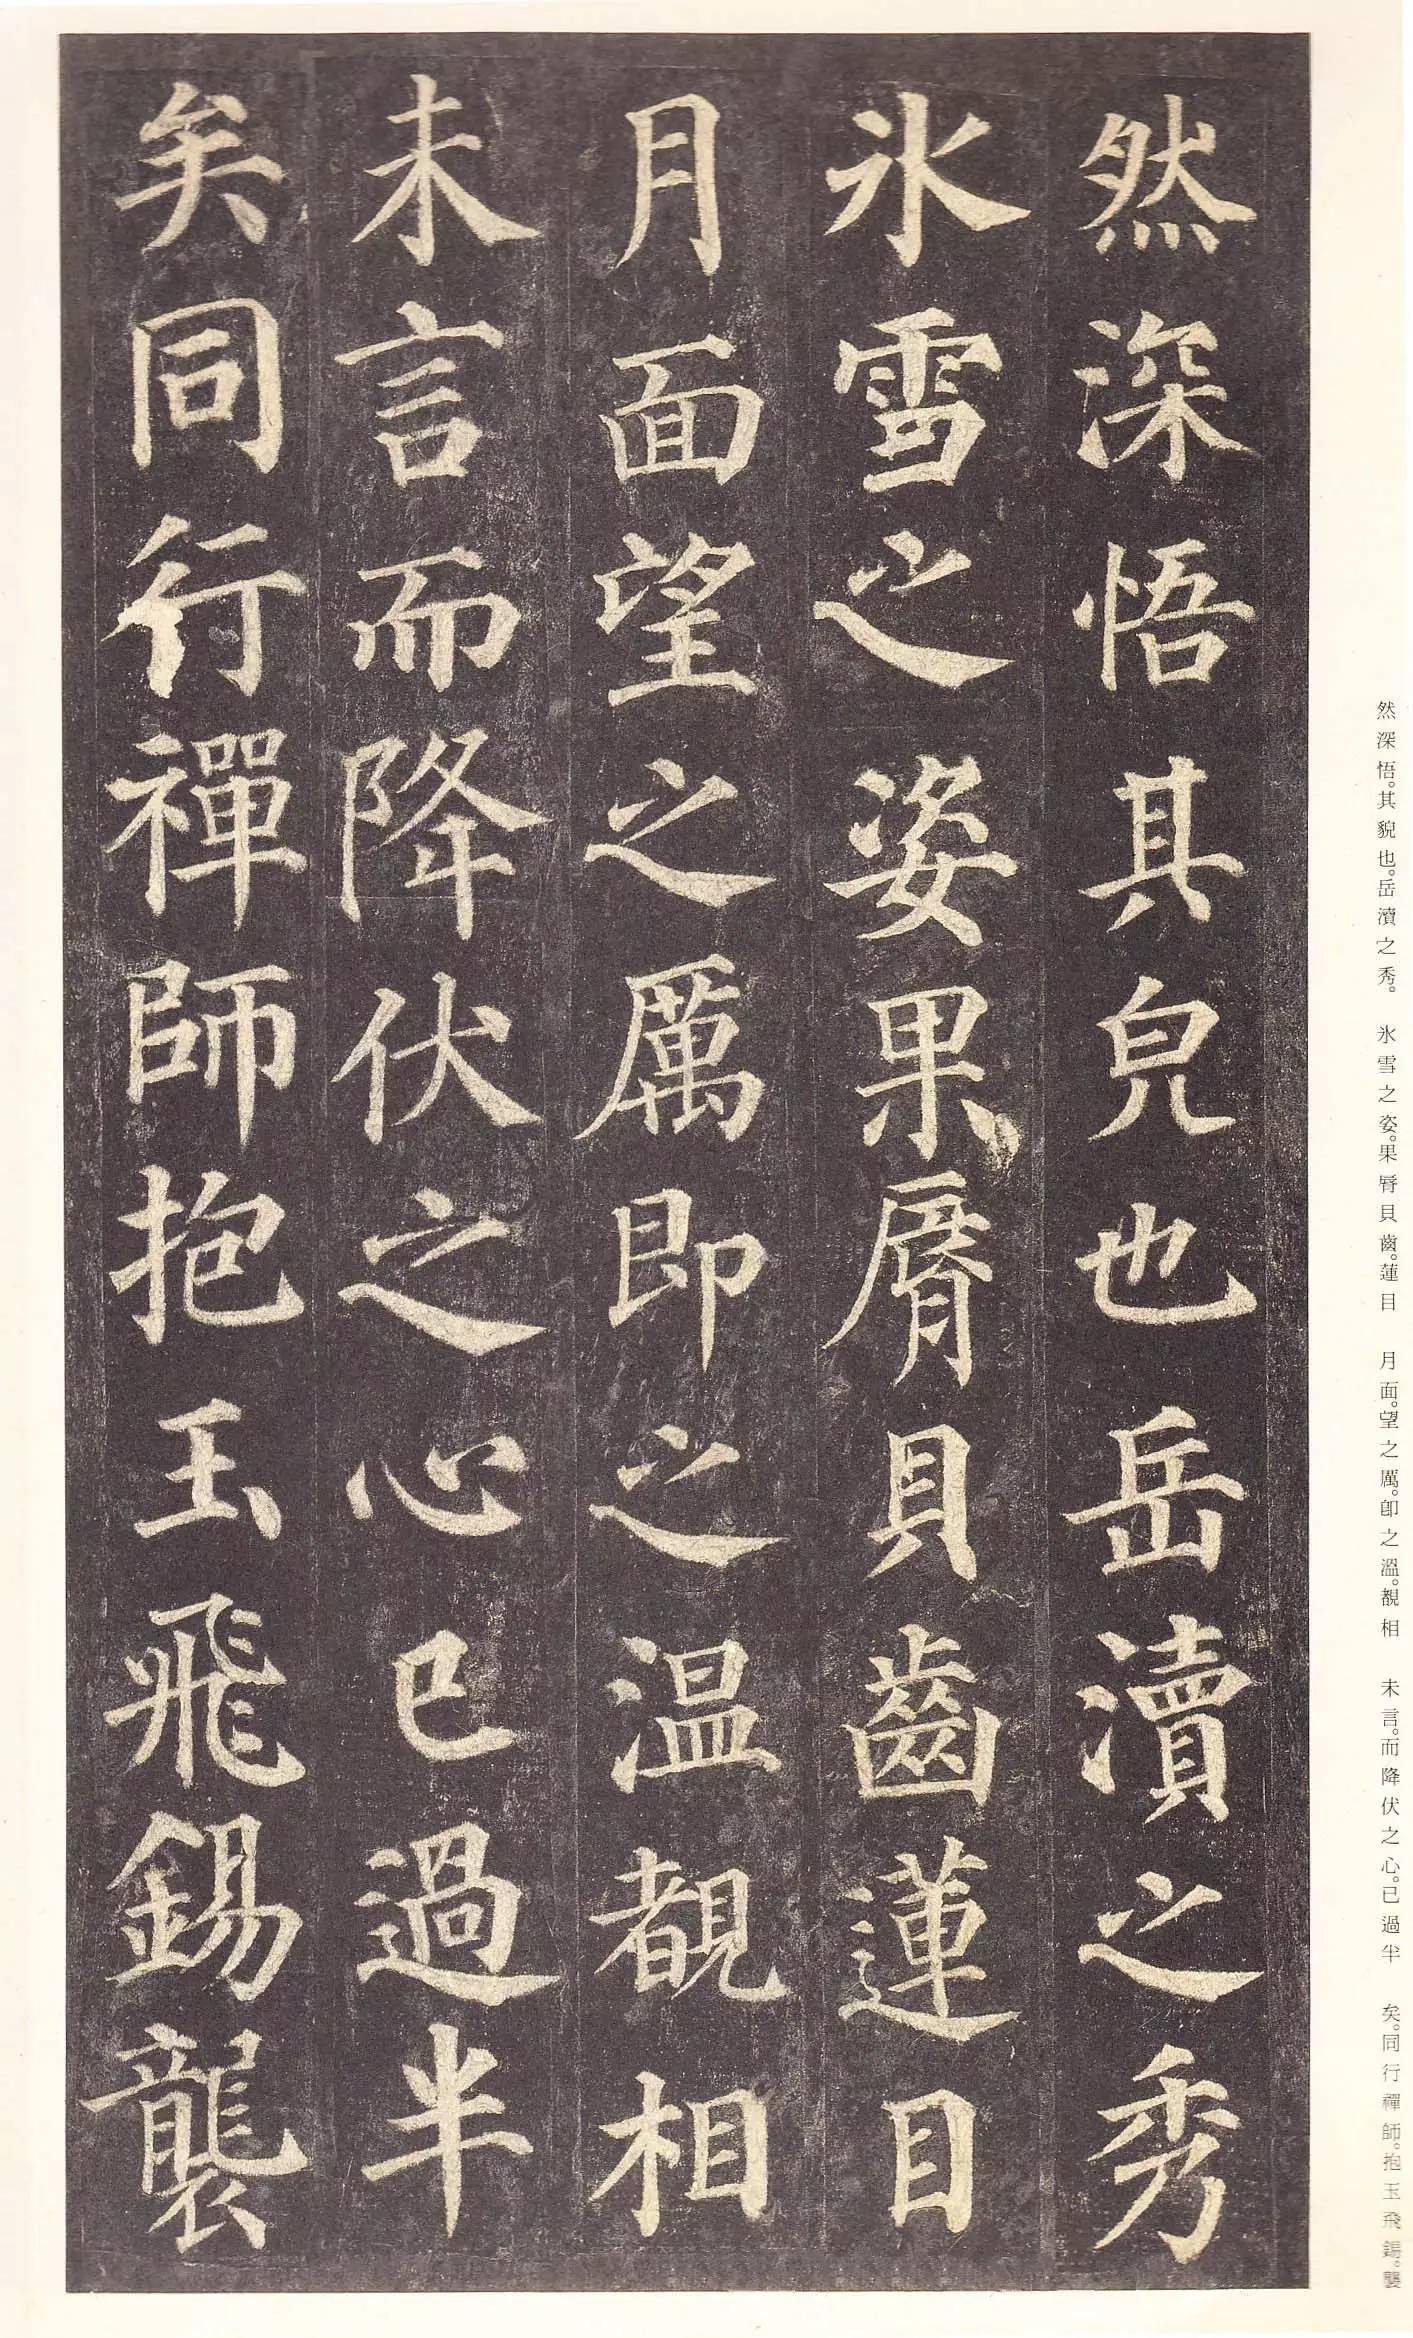 然深悟其皃也岳瀆之秀
氷雪之姿果脣貝齒蓮目
月面望之厲即之温覩相
未言而降伏之心已過半
矣同行禪師抱玉飛錫襲
然深悟。其貌也。岳瀆之秀。 氷雪之姿。果脣貝齒。蓮目 月面。望之厲。卽之溫。覩相 未言。而降伏之心。已過半 矣。同行禪師。抱玉飛錫。襲